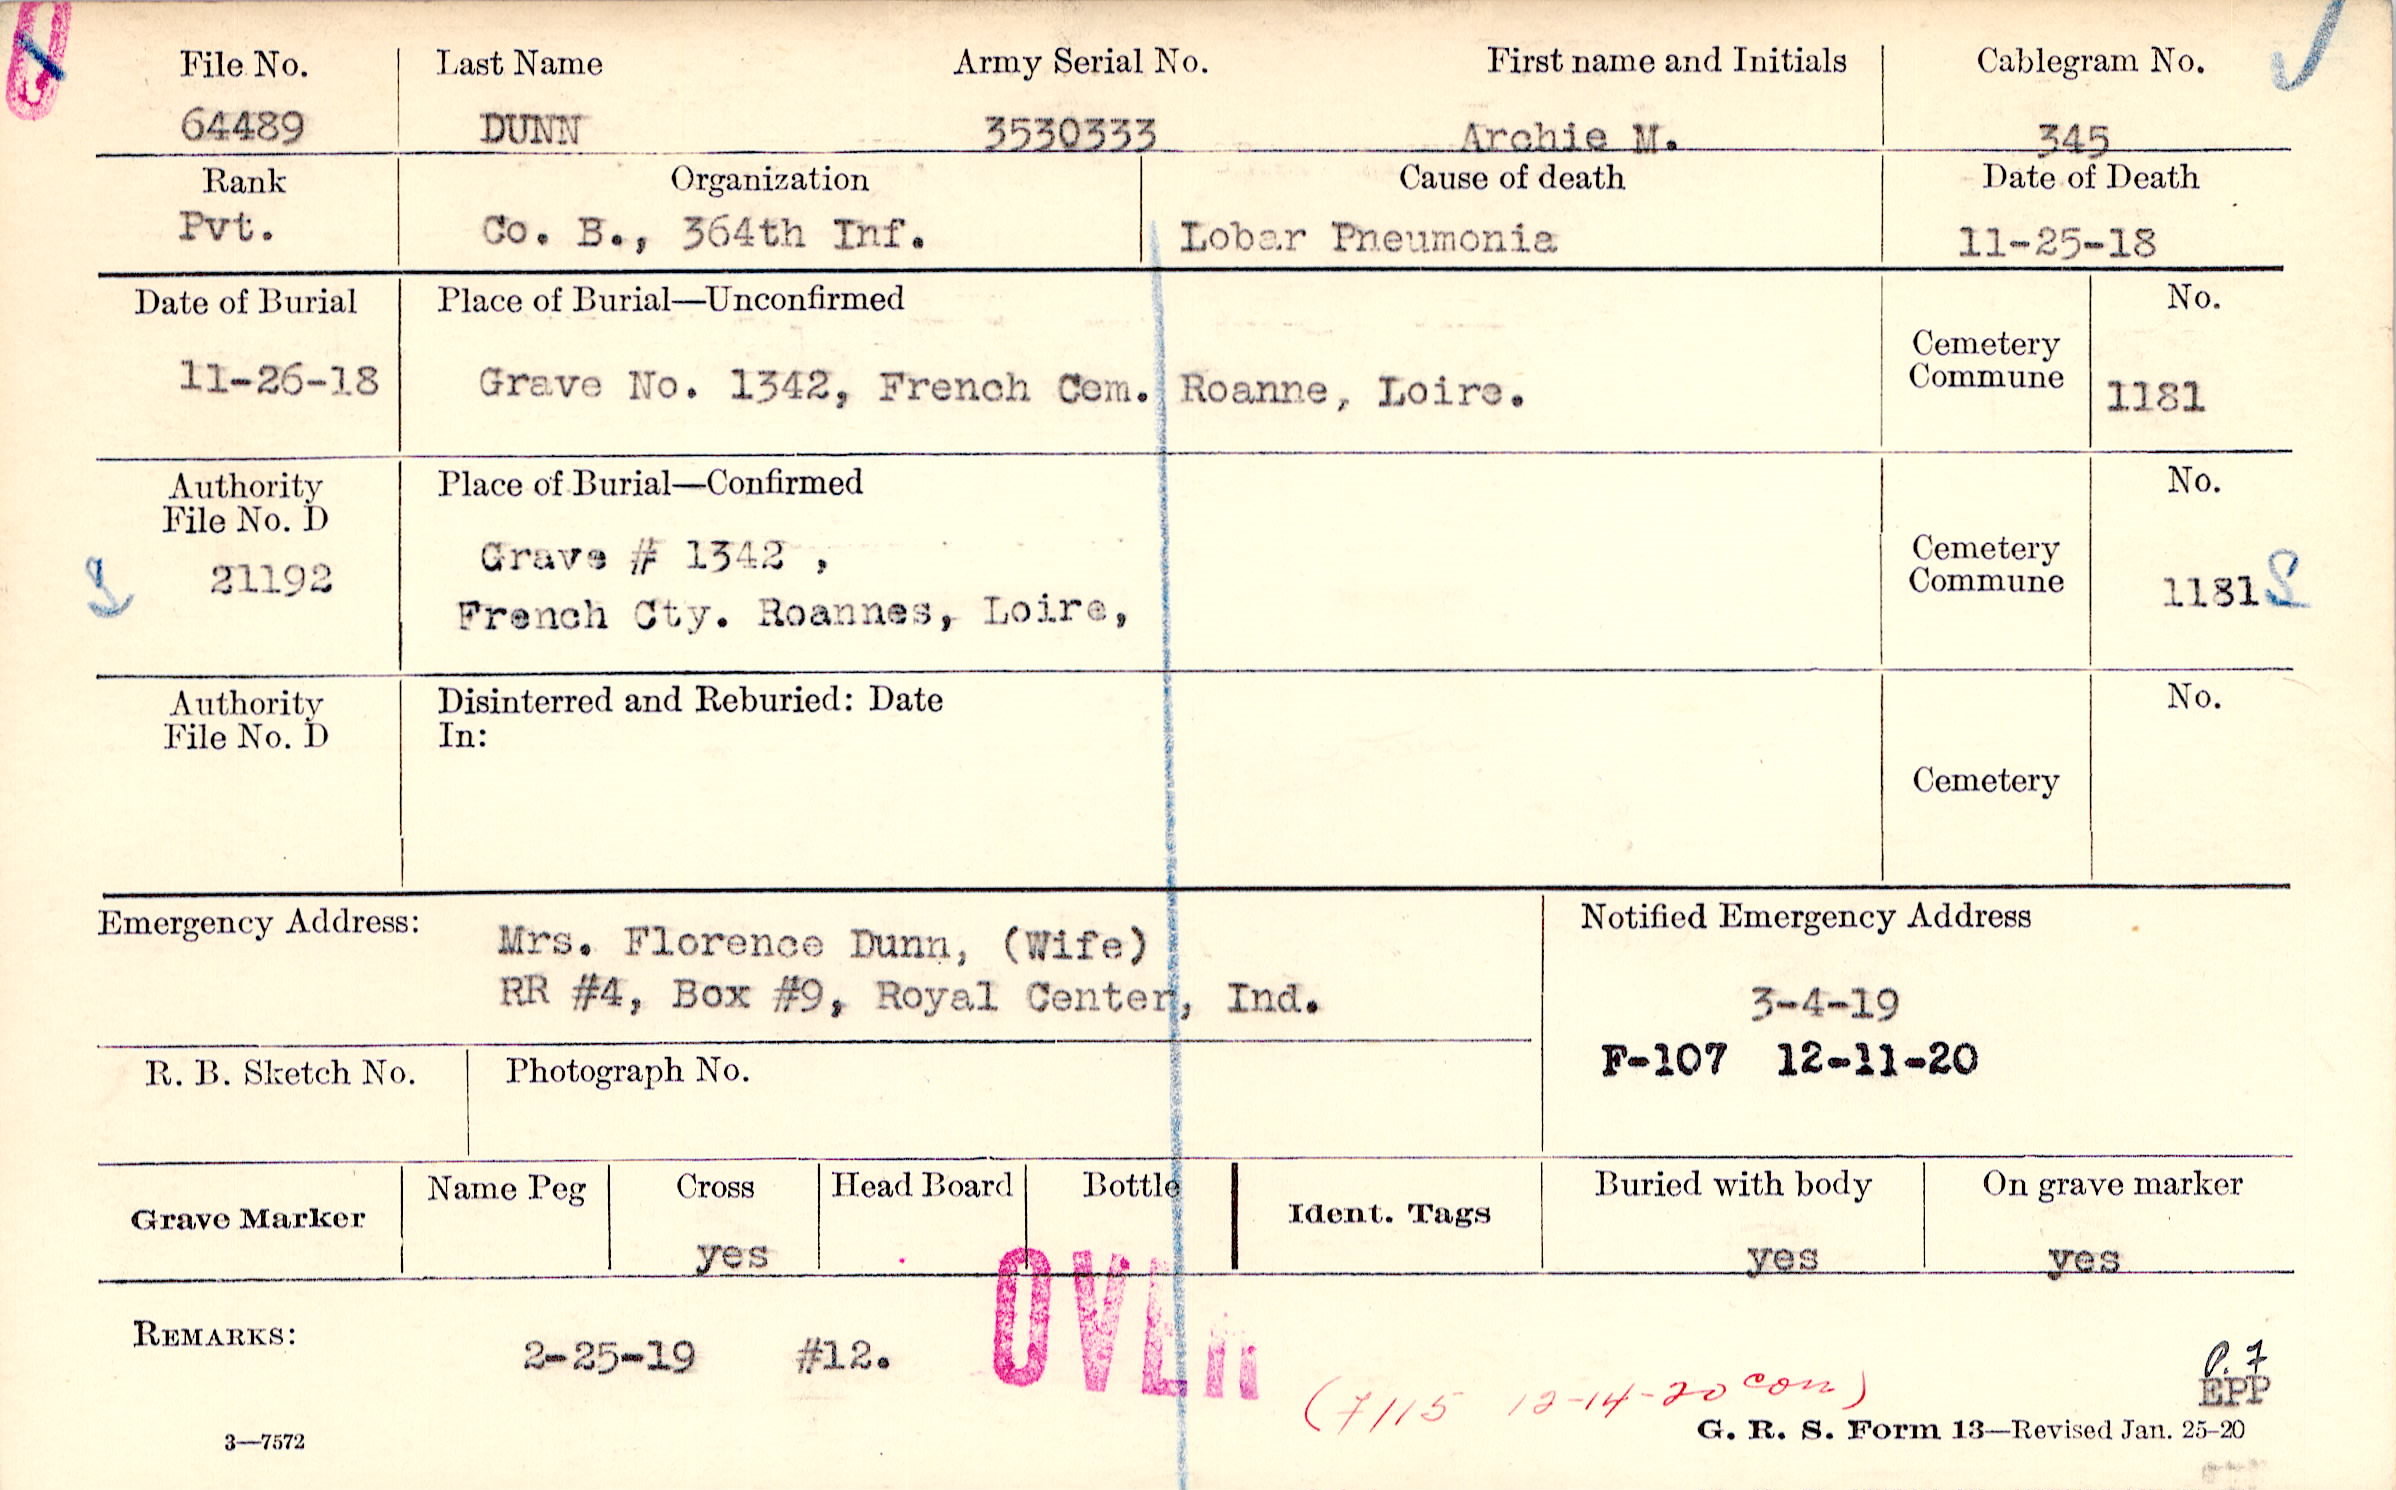 File No.
Last Name
Army Serial No.
First name and Initials
Cablegram No.
64489
DUNN
3530333
Archie M.
345
Rank
Organization
Cause of death
Date of Death
Pvt.
Co. B., 364th Inf.
Lobar Pneumonia
11-25-18
Date of Burial
Place of Burial—Unconfirmed
No.
11-26-18
Grave No. 1342, French Cem. Roanne, Loire.
Cemetery
Commune
1181
Authority
File No. D
Place of Burial—Confirmed
No.
S
21192
Grave # 1342 ,
French Cty. Roannes, Loire,
Cemetery
Commune
1181 S
Authority
File No. D
Disinterred and Reburied: Date
In:
No.
Cemetery
Emergency Address:
Mrs. Florence Dunn, (Wife)
RR #4, Box #9, Royal Center, Ind.
Notified Emergency Address
3-4-19
F-107 12-11-20
R. B. Sketch No.
Photograph No.
Grave Marker
Name Peg
Cross
Head Board
Bottle
Ident. Tags
Buried with body
On grave marker
yes
yes
yes
REMARKS:
2-25-19 #12.
OVER
(7115 12-14-20 con)
P. 7
EPP
3—7572
G. R. S. Form 13—Revised Jan. 25-20